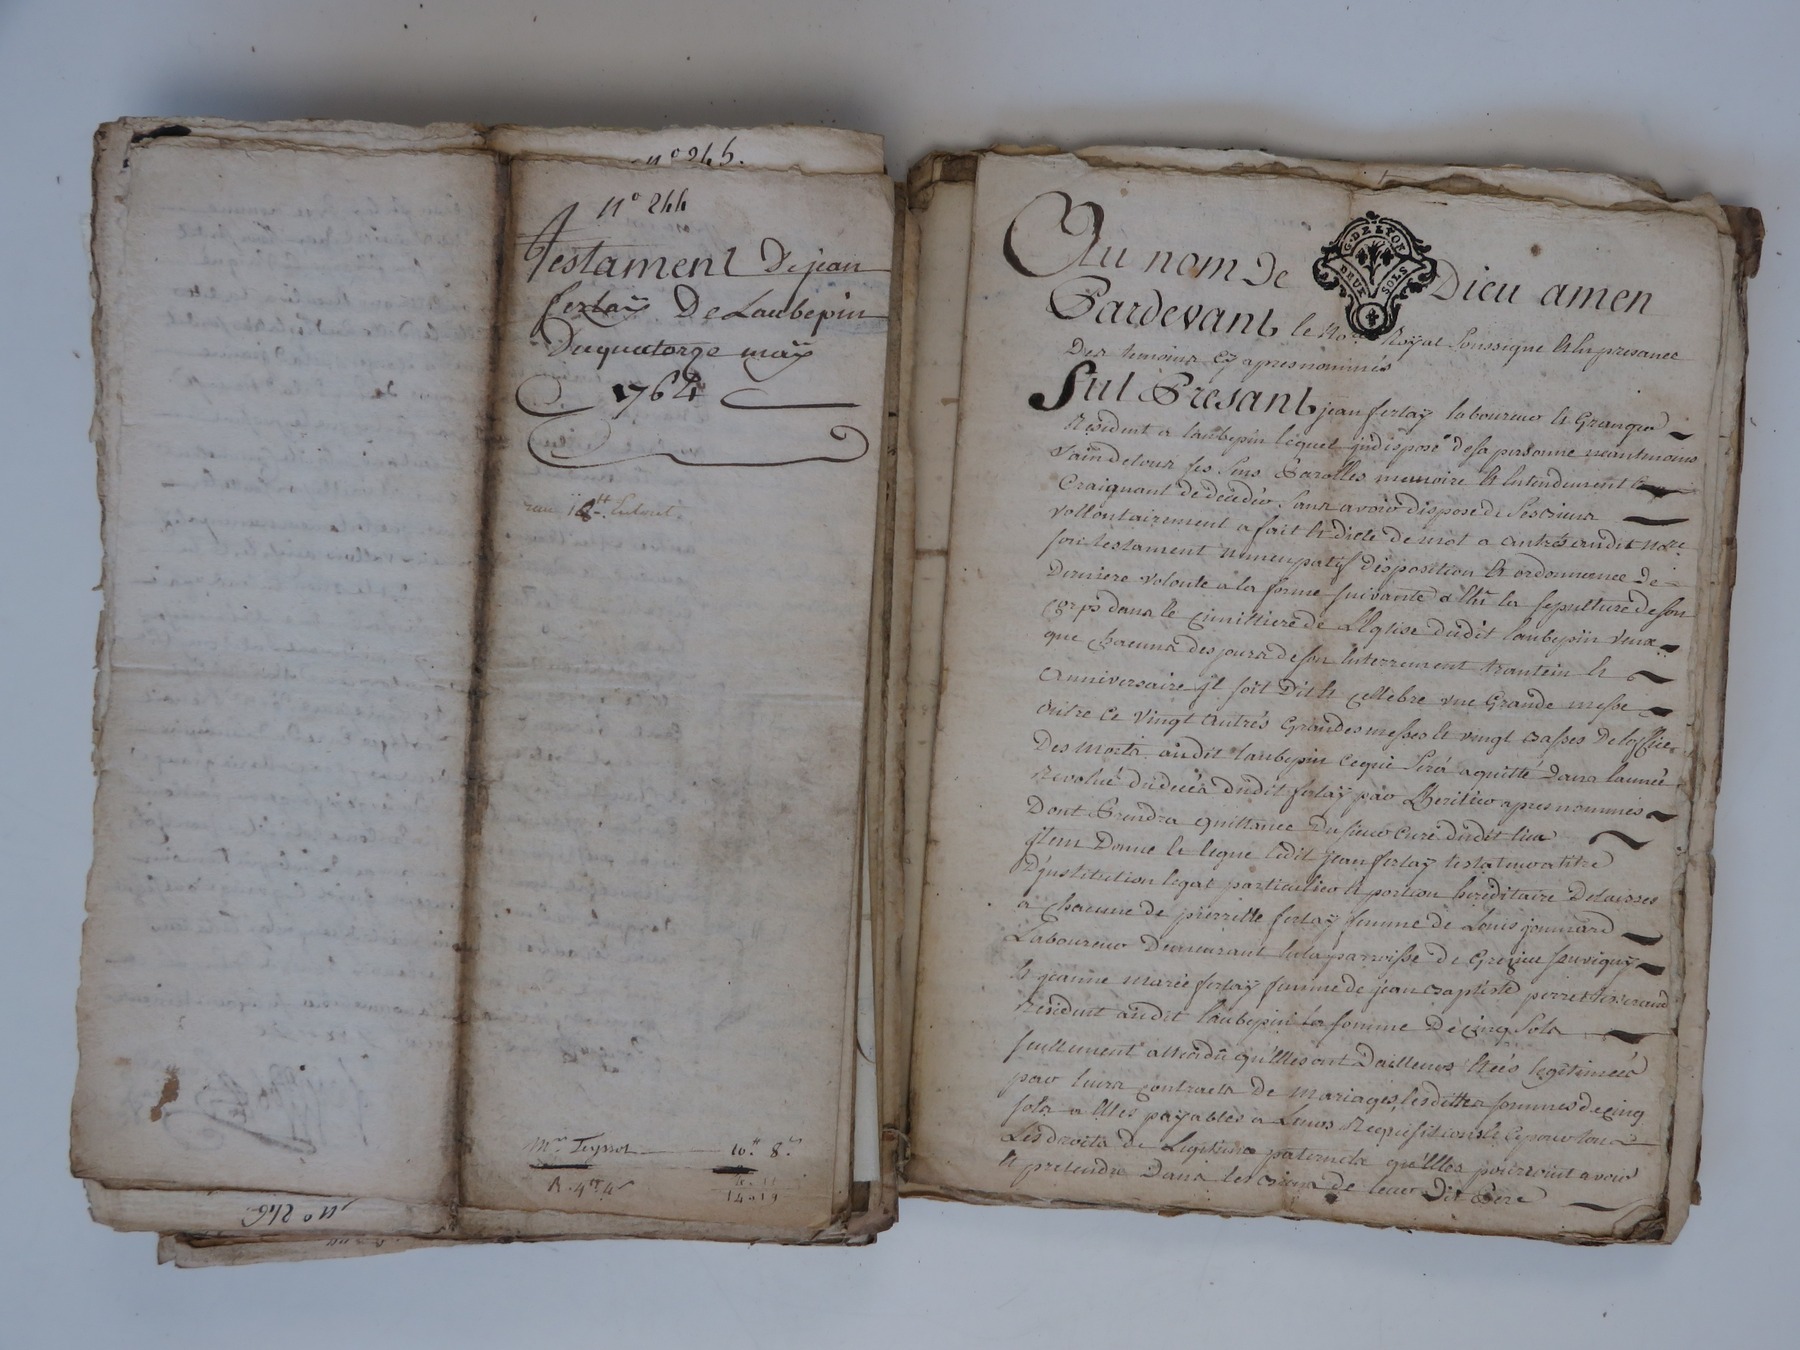 n° 245.
n° 244
Testament de jean
ferlaÿ De Laubepin
Duquatorze maÿ
1764
Mr. Teyssot 10.tt 8.s
R. 4tt 4s
14 . 19
n° 246
Au nom De Dieu amen
G. DE LYON
DEUX SOLS
Pardevant le No.re Royal Soussigné Et En presance
Des temoins cy apres nommés
Fut Presant jean ferlaÿ laboureur et Granger
Résident a laubepin lequel jndisposé de sa personne neantmoins
Sain de tous ses Sens Parolles memoire Et Entendement
Craignant de déceder Sans avoir disposé de Ses biens
vollontairement a fait et dicté de mot a autrés audit No.re
son testament nuncupatif disposition Et ordonnence de
Derniere volonté a la forme suivante a Elu la sepulture de son
corps dans le cimittiere de LEglise dudit laubepin veux
que chacuns des jours de son Enterrement trantein et
Anniversaire jl soit Dit et cellebré une Grande messe
outre ce Vingt autrés Grandes messes et vingt basses De loffice
Des morts audit laubepin ce qui Sera aquitté dans lannée
Revolue du décés dudit ferlaÿ par Lheritier apres nommés
Dont Prendra quittance Du sieur curé dudit lieu
jtem Donne et legue ledit jean ferlaÿ testateur a titre
D'jnstitution legat particulier et portion héréditaire Delaissés
a chacune de pierrette ferlaÿ femme de Louis jounard
Laboureur Demeurant En la parroisse de Grezieu souvignÿ
Et jeanne marie ferlaÿ femme de jean baptiste perret tisserand
Résident audit laubepin la somme De cinq Sols
seullement attendû qu'Elles ont Dailleurs Etéés légitimeés
par leurs contracts de mariages, lesdittes sommes de cinq
sols a Elles payables a Leurs Requisitions Et ce pour tous
Les droits de Legitime paternels qu'Elles pourroint avoir
Et pretendre Dans les biens de leur Dit Pere